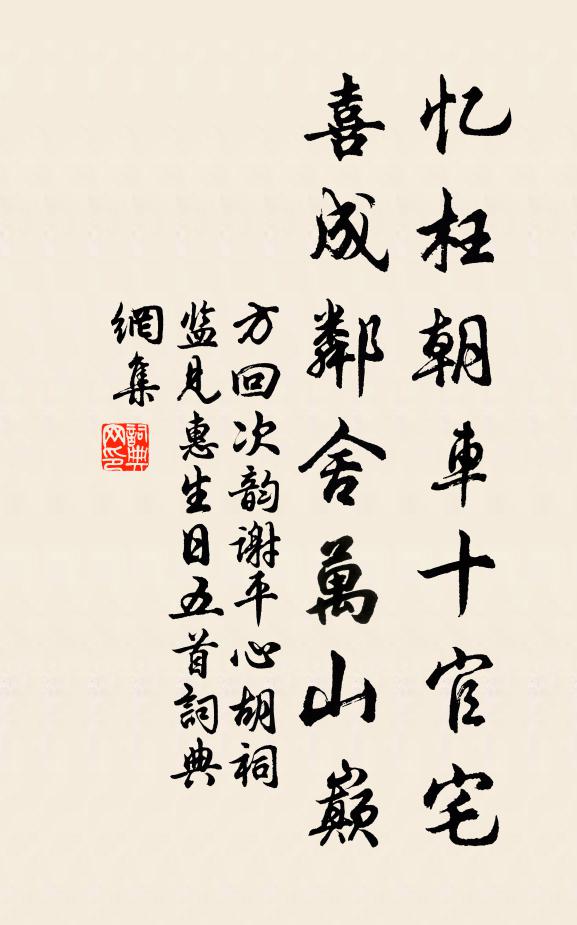 忆枉朝車十官宅
喜成鄰舍萬山巔
方回次韵谢平心胡祠
监見惠生日五首詞典
網集
詞典
网印